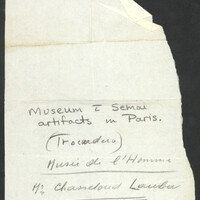 Museum c̄ Semai
artifacts in Paris.
(Trocadero)
Musée de l'Homme
Mr Chandoud Lauba